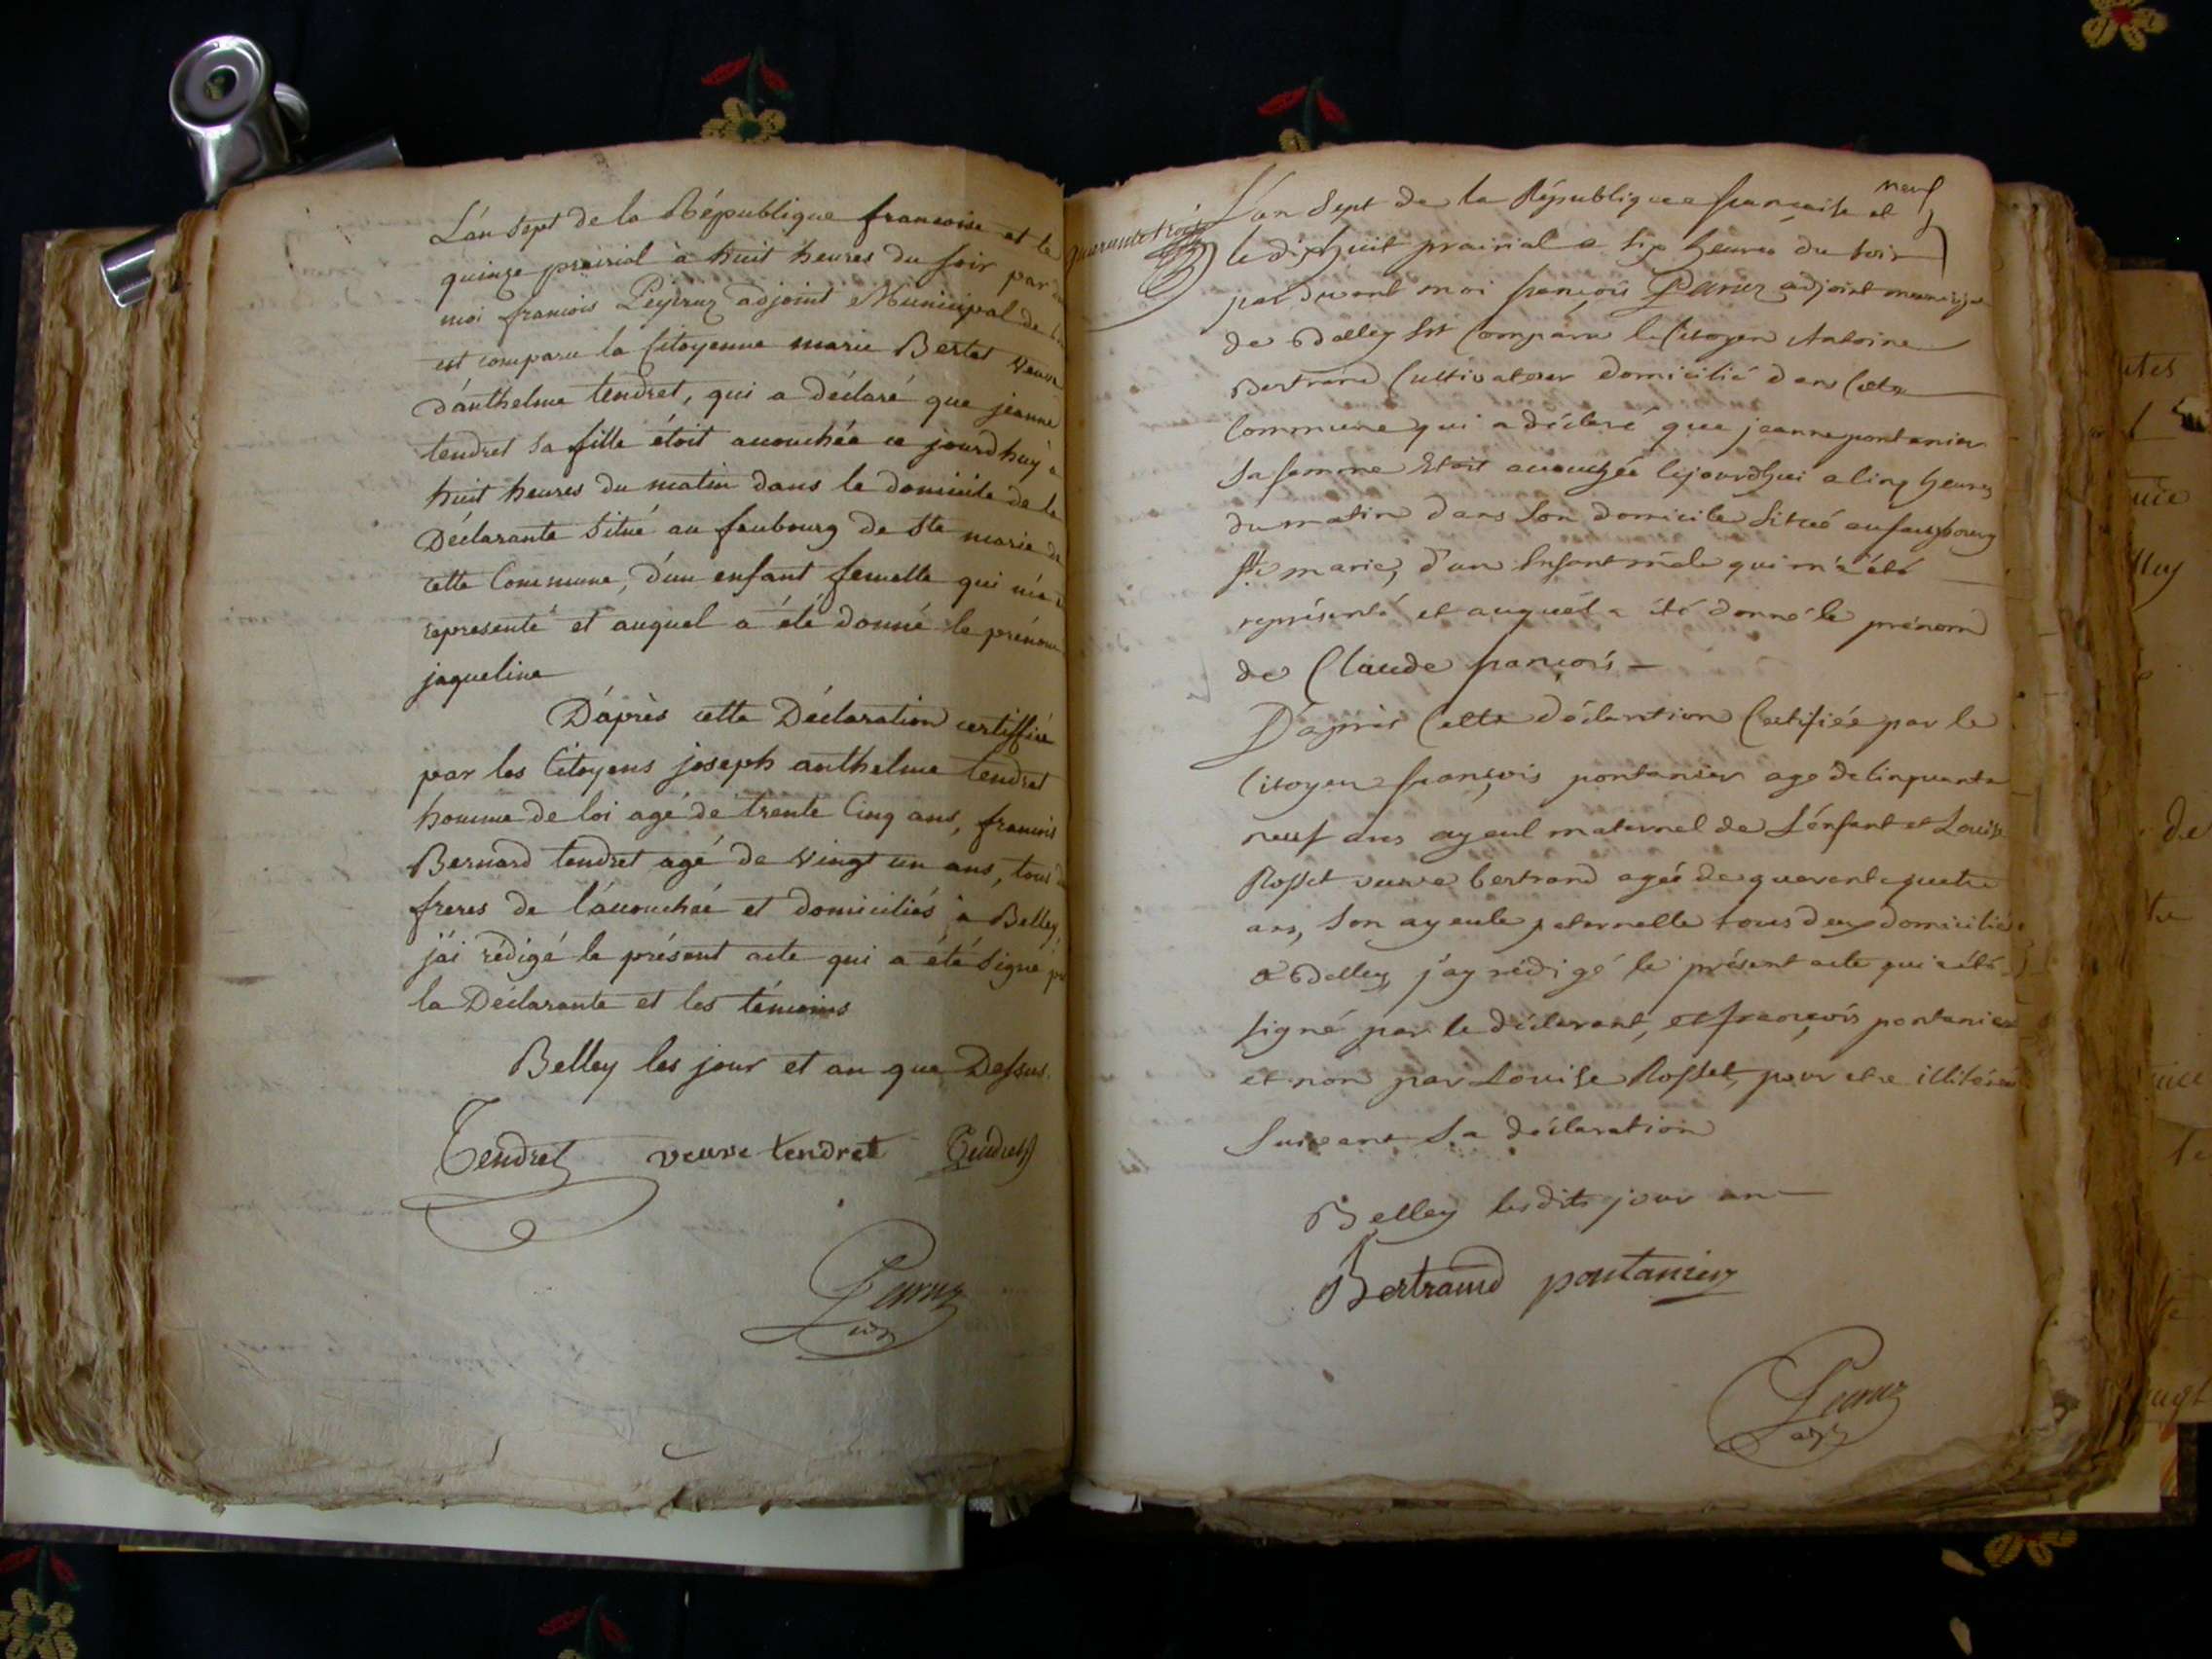 L'an Sept de la République francoise et le
quinze prairial à huit heures du soir par
moi francois Peyeruz adjoint Municipal de
est comparu la Citoyenne marie Bertet veuve
d'anthelme tendret, qui a déclaré que jeanne
tendret sa fille étoit acouchée ce jourd'huy à
huit heures du matin dans le domicile de la
Déclarante Situé au faubourg de Ste marie de
cette Commune, d'un enfant femelle qui m'a
representé et auquel a été donné le prénom
jaqueline
D'après cette Déclaration certiffiée
par les Citoyens joseph anthelme tendret
homme de loi agé de trente Cinq ans, francois
Bernard tendret agé de vingt un ans, tous
freres de l'acouchée et domiciliés à Belley
j'ai rédigé le présent acte qui a été Signé
la Déclarante et les témoins
Belley les jour et an que Dessus.
Tendret veuve tendret Tendret
quarante trois
L'an Sept de la République francaise et neuf
le dixhuit prairial a six heures du soir
par devant moi francois adjoint municipal
de Belley Est Comparu le Citoyen Antoine
Bertrand Cultivateur domicilié dans Cette
Commune qui a déclaré que jeanne pontanier
Sa femme Etoit acouchée Cejourdhui a Cinq heures
du matin dans Son domicile Situé au fauxbourg
Ste marie, d'un Enfant mâle qui m'a été
représenté et auquel a été donné le prénom
de Claude francois
D'après Cette déclaration Certifiée par le
Citoyen françois pontanier agé de Cinquante
neuf ans ayeul maternel de L'enfant et Louise
Rosset veuve bertrand agée de quarante quatre
ans, Son ayeule paternelle tous deux domiciliés
a Belley, j'ay rédigé le présent acte qui a été
Signé par le déclarant, et françois pontanier
et non par Louise Rosset, pour etre illitérée
Suivant Sa déclaration
Belley lesdits jour an
Bertrand pontanier